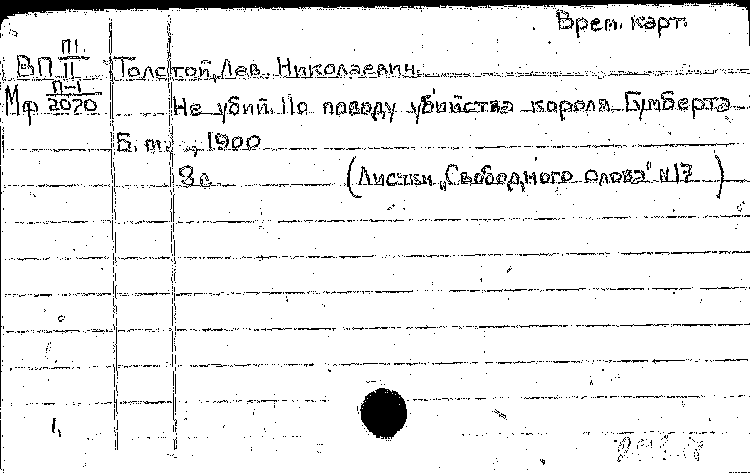 Врем. карт.
ВП П1/II Толстой, Лев. Николаевич.
Мф П-1/2020 Не убий. По поводу убийства короля Гумберта
Б. м., 1900
8 с. (Листки „Свободного слова" N 17)
1,